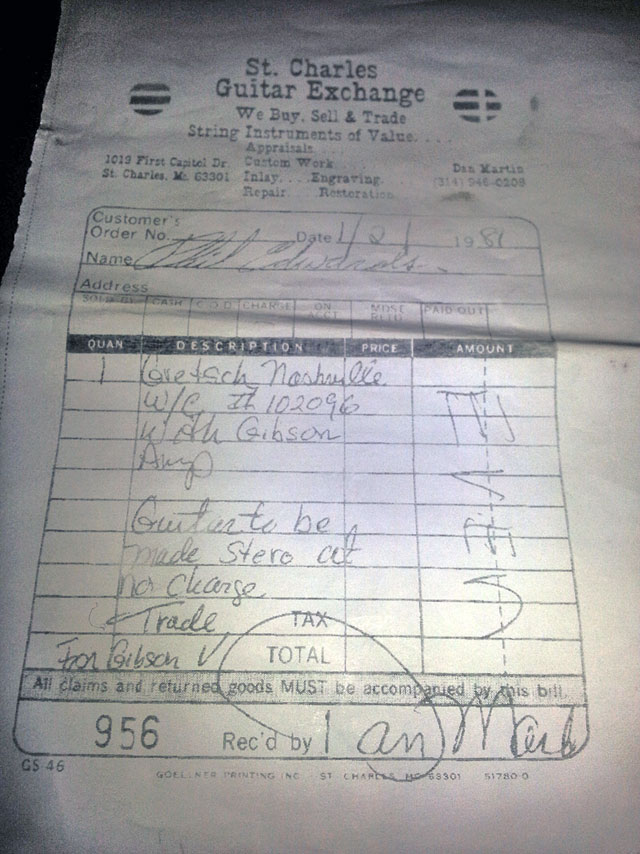 St. Charles
Guitar Exchange
We Buy, Sell & Trade
String Instruments of Value....
Appraisals...
1019 First Capitol Dr. Custom Work
St. Charles, Mo. 63301 Inlay....Engraving Dan Martin
Repair...Restoration (314) 946-0208
Customer's
Order No. Date 1/21 1981
Name Phil Edwards
Address
SOLD BY CASH C.O.D. CHARGE ON ACCT. MDSE. RETD. PAID OUT
QUAN DESCRIPTION PRICE AMOUNT
1 Gretsch Nashville
W/C 102096
With Gibson
Amp
Guitar to be
made Stero at
No Charge
Trade TAX
For Gibson V TOTAL
All claims and returned goods MUST be accompanied by this bill.
956 Rec'd by Dan Martin
GS-46 GOELLNER PRINTING INC. ST. CHARLES, MO 63301 51780-0